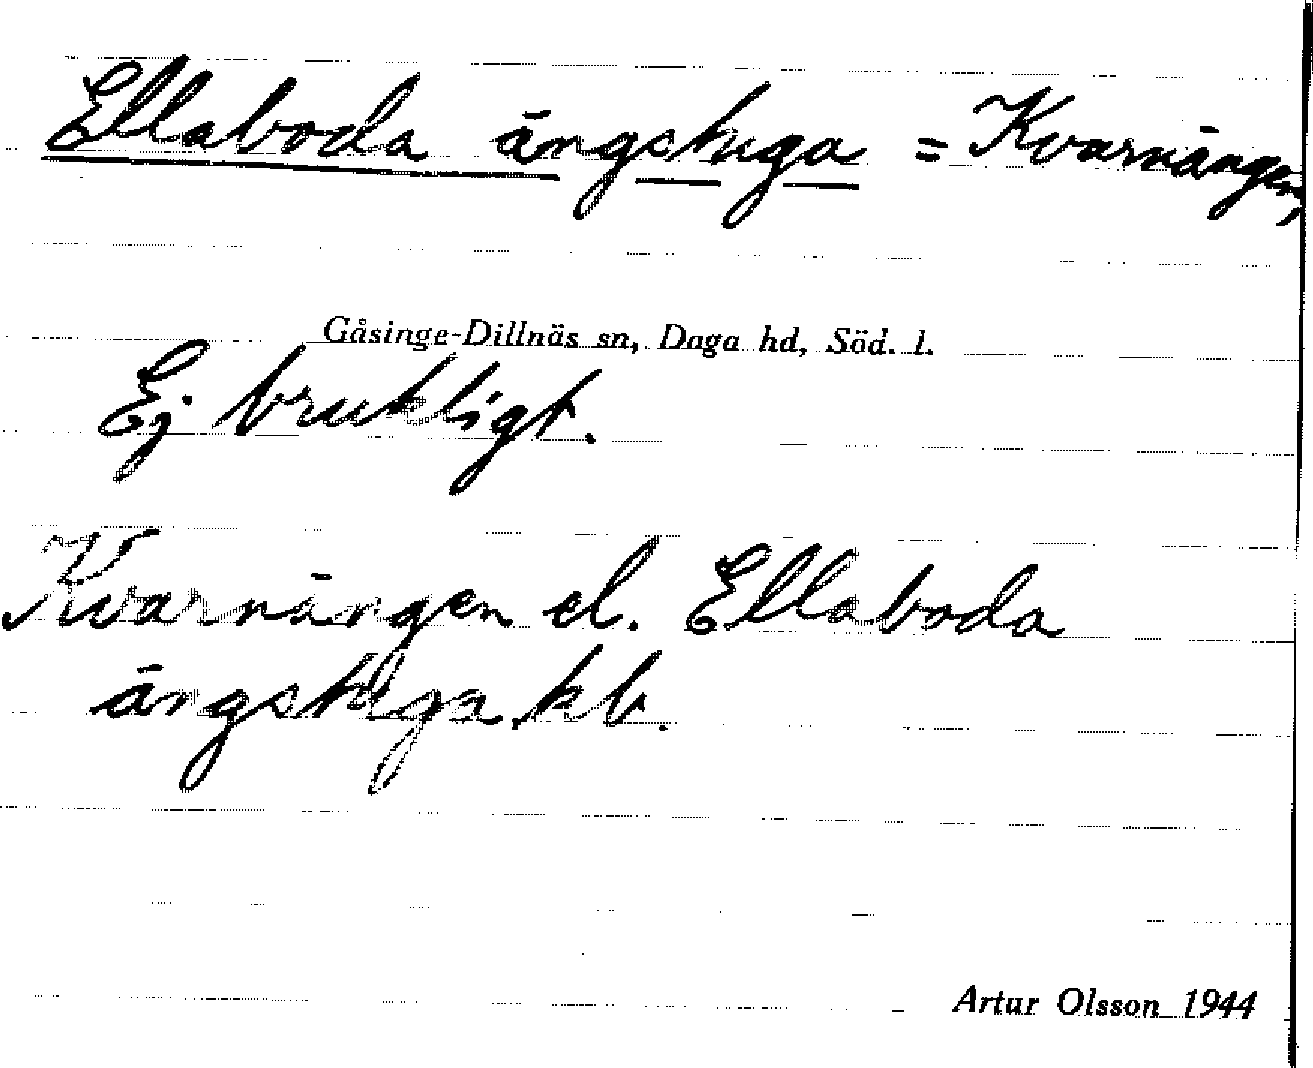 Ellaboda ängstuga = Kvarnängen,
Gåsinge-Dillnäs sn, Daga hd, Söd. l.
Ej brukligt.
Kvarnängen el. Ellaboda
ängstuga, kb.
Artur Olsson 1944